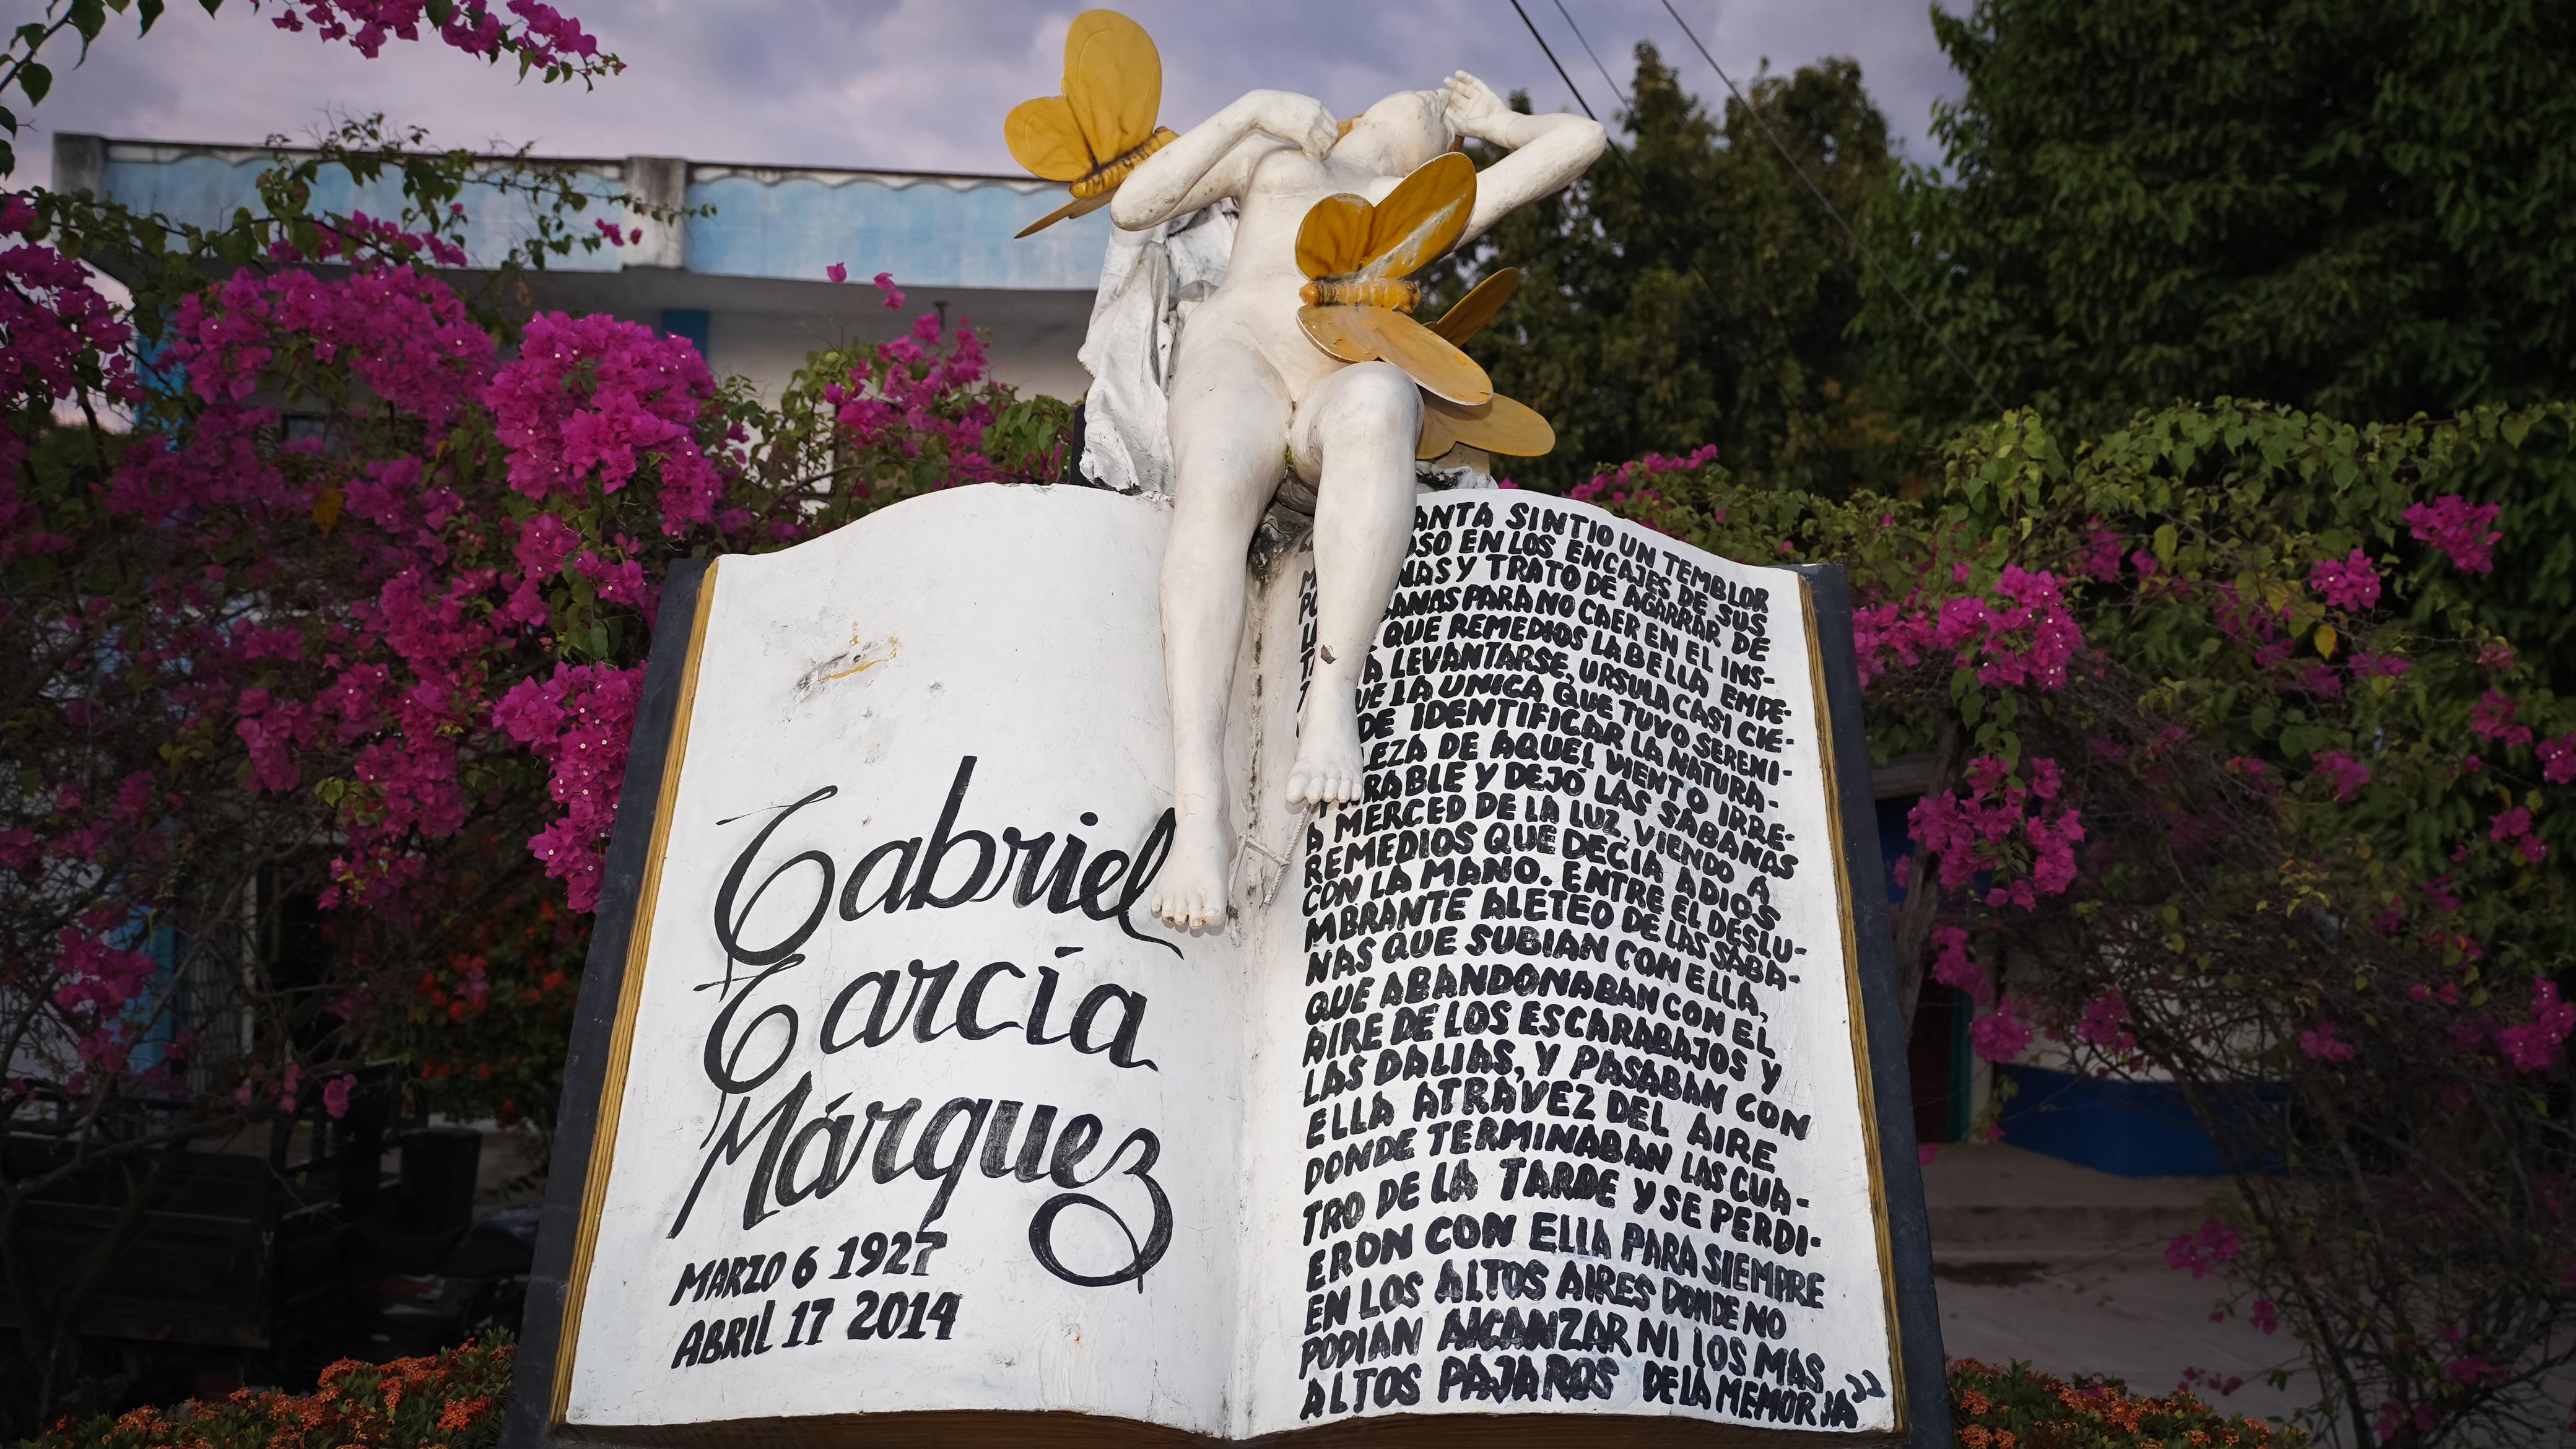 Gabriel
García
Márquez
MARZO 6 1927
ABRIL 17 2014
SINTIO UN TEMBLOR
EN LOS ENCAJES DE SUS
Y TRATO DE AGARRAR DE
PARA NO CAER EN EL INS-
QUE REMEDIOS LA BELLA EMPE-
A LEVANTARSE, URSULA CASI CIE-
LA UNICA QUE TUVO SERENI-
DE IDENTIFICAR LA NATURA-
LEZA DE AQUEL VIENTO IRRE-
RABLE Y DEJO LAS SABANAS
A MERCED DE LA LUZ, VIENDO A
REMEDIOS QUE DECIA ADIOS
CON LA MANO. ENTRE EL DESLU-
MBRANTE ALETEO DE LAS SABA-
NAS QUE SUBIAN CON ELLA,
QUE ABANDONABAN CON EL
AIRE DE LOS ESCARABAJOS Y
LAS DALIAS, Y PASABAN CON
ELLA ATRAVEZ DEL AIRE
DONDE TERMINABAN LAS CUA-
TRO DE LA TARDE Y SE PERDI-
ERON CON ELLA PARA SIEMPRE
EN LOS ALTOS AIRES DONDE NO
PODIAN ALCANZAR NI LOS MAS
ALTOS PAJAROS DE LA MEMORIA"